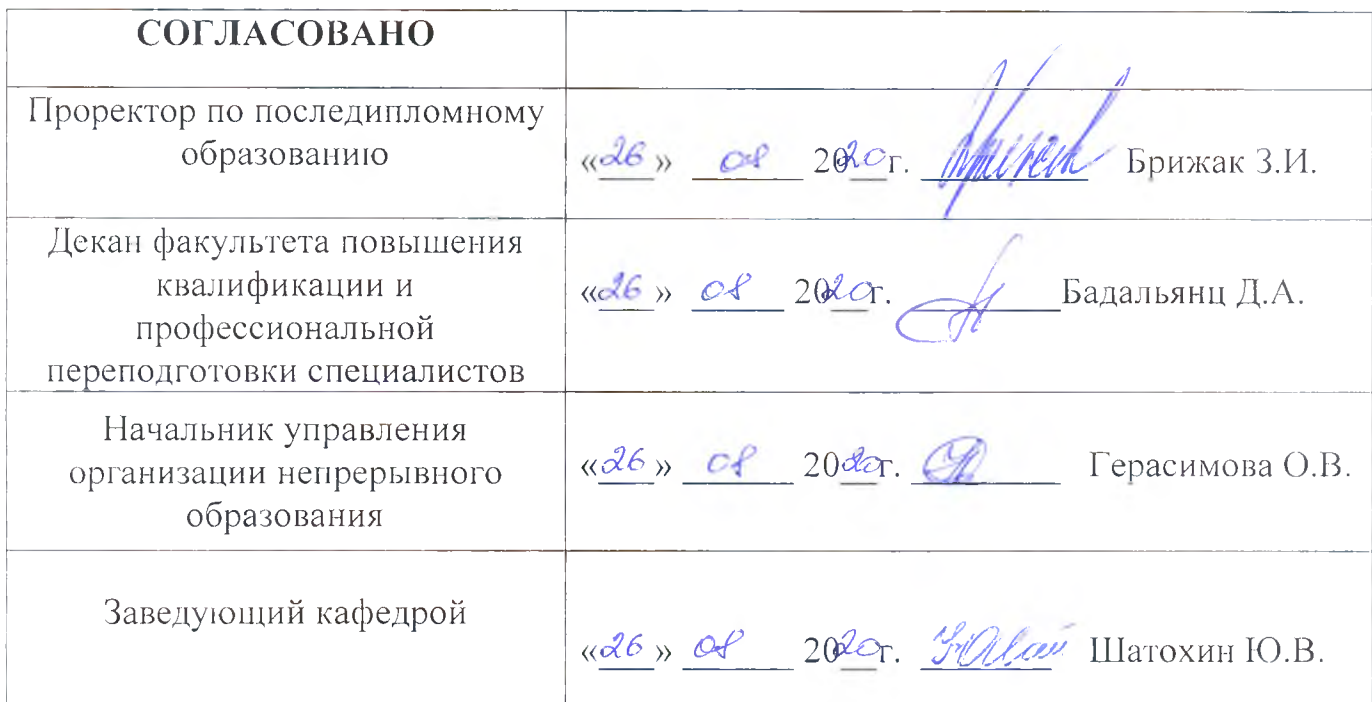 СОГЛАСОВАНО
Проректор по последипломному
образованию
«26» 08 2020г. Брижак З.И.
Декан факультета повышения
квалификации и
профессиональной
переподготовки специалистов
«26» 08 2020г. Бадальянц Д.А.
Начальник управления
организации непрерывного
образования
«26» 08 2020г. Герасимова О.В.
Заведующий кафедрой
«26» 08 2020г. Шатохин Ю.В.